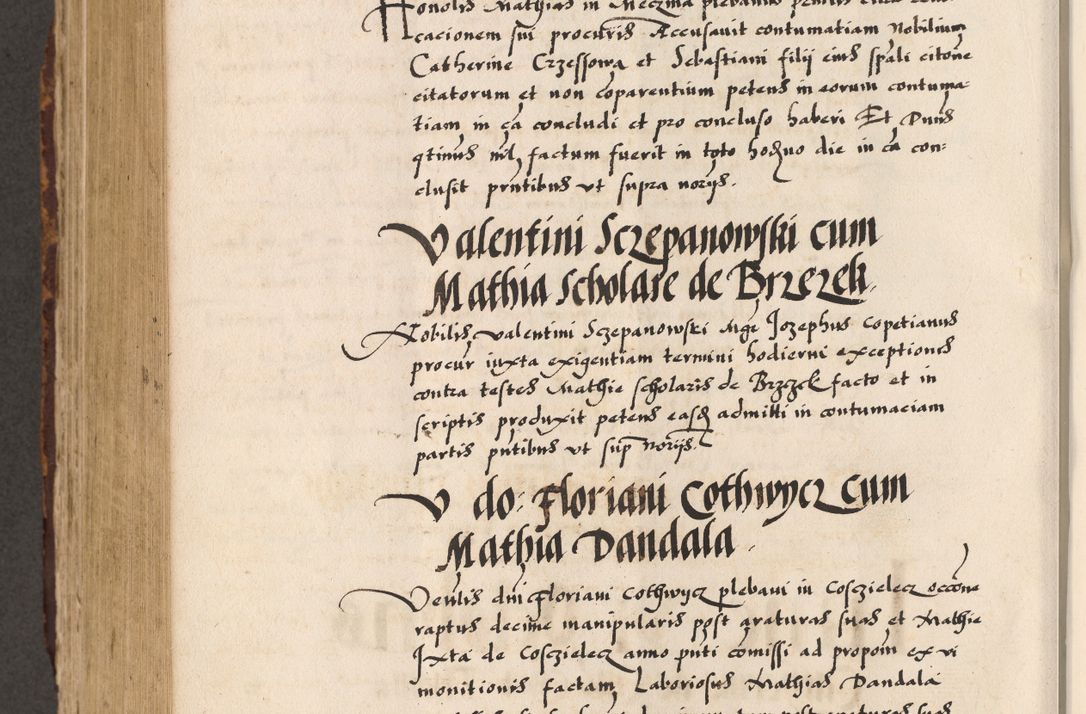 Honolis Mathias in Meczina plebanus
cacionem sui procuris Accusavit contumatiam Nobilium
Catherine Crzessowa et Sebastiani filij eius spali citone
citatorum et non coparentium petens in eorum contuma
tiam in ca concludi et pro concluso haberi Et Dnus
qtinus nil factum fuerit in toto hodno die in ca con:
clusit pntibus vt supra norijs.
Valentini Sczepanowski cum
Mathia Scholare de Brzezek.
Nobilis valentini Sczepanowski Mgr Jozephus Copetianus
procur iuxta exigentiam termini hodierni exceptiones
contra testes Mathie scholaris de Brzezek facto et in
scriptis produxit petens easdem admitti in contumaciam
partis pntibus vt sup norijs.
V do: Floriani Cothwycz cum
Mathia Dandala.
Venlis dni floriani Cothwycz plebani in Cosczielecz occone
raptus decime manipularis post araturas suas et Mathie
Jxta de Cosczielecz anno pnti comissi ad propoin ex vi
monitionis factam Laboriosus Mathias Dandala